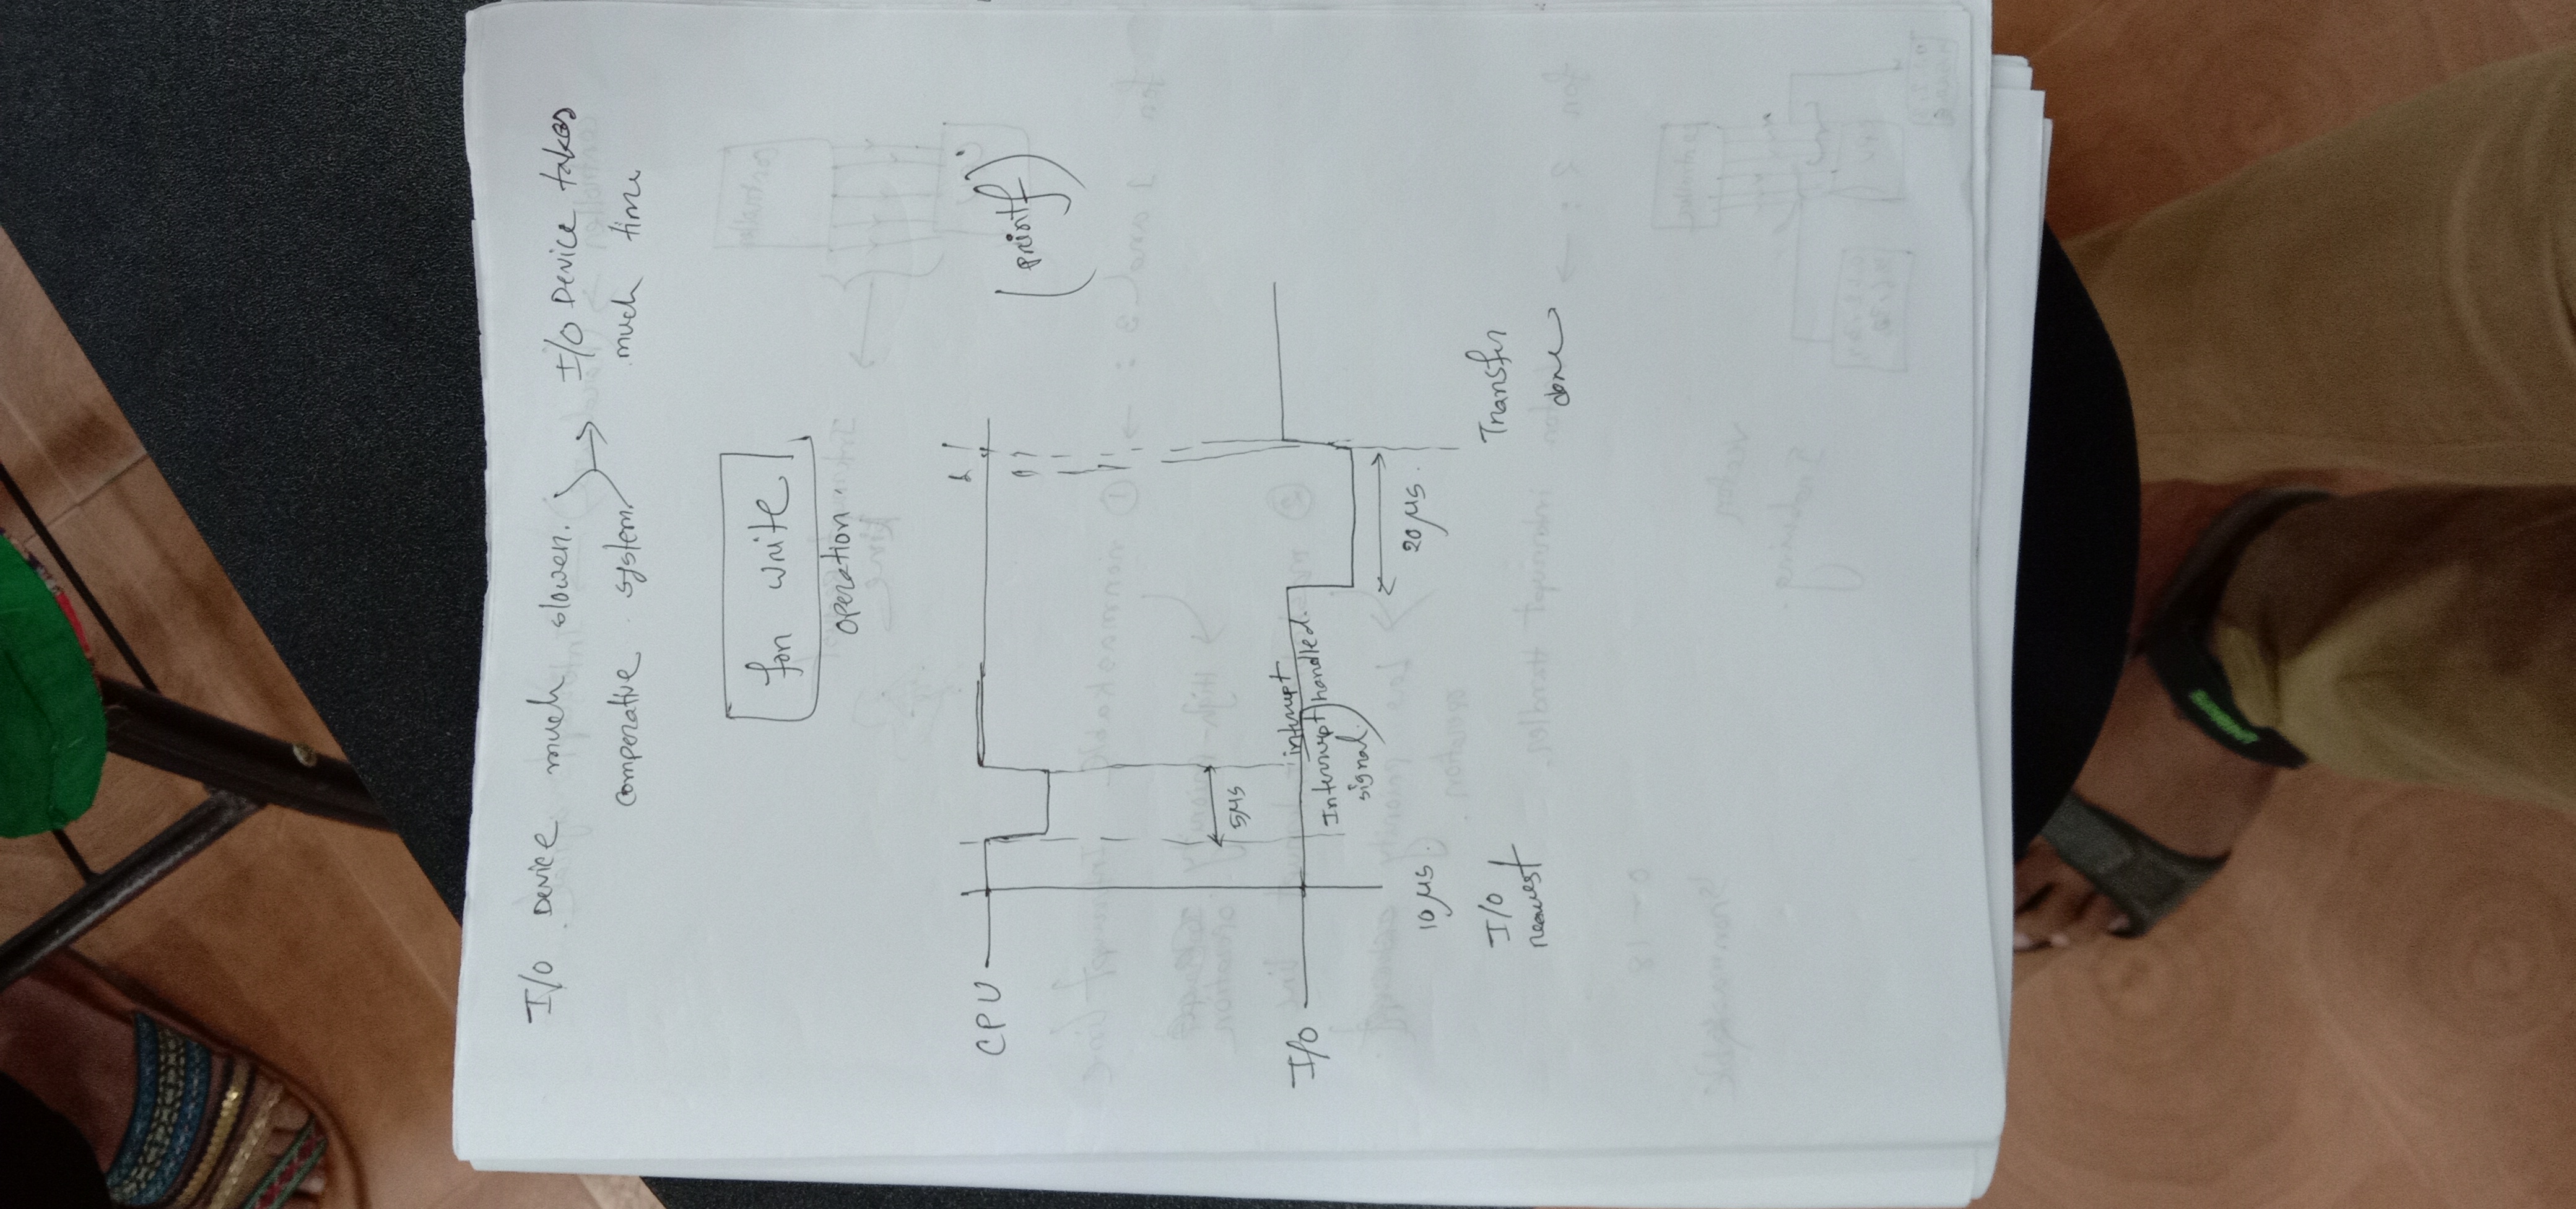 I/O Device much slower.
comperative system.
I/O Device takes
much time
for write
operation.
CPU
(printf)
5μs
I/O
interupt
Interrupt handled.
signal.
10 μs.
20 μs.
I/O
request
Transfer
done